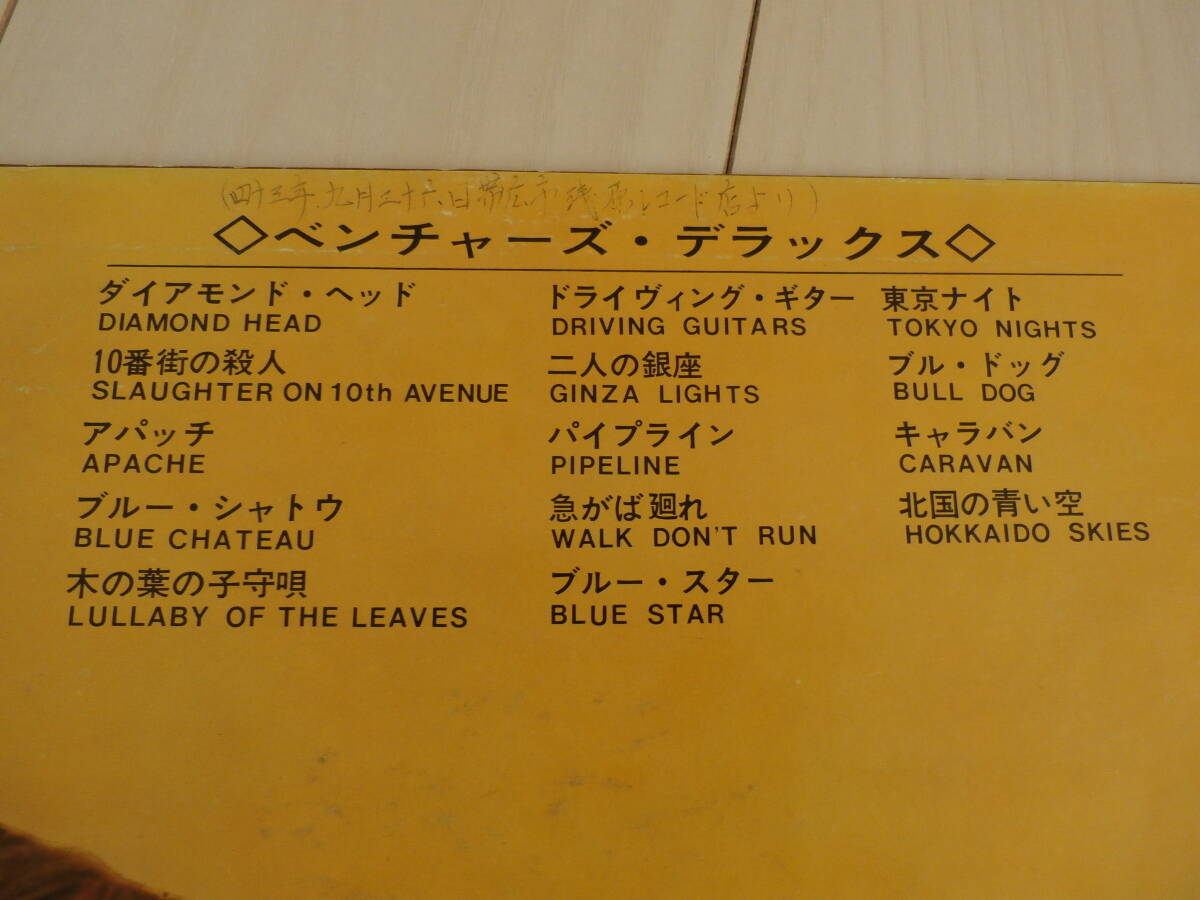 (四十三年.九月二十六.日帯広市 原レコード店より)
◇ベンチャーズ・デラックス◇
ダイアモンド・ヘッド
DIAMOND HEAD
10番街の殺人
SLAUGHTER ON 10th AVENUE
アパッチ
APACHE
ブルー・シャトウ
BLUE CHATEAU
木の葉の子守唄
LULLABY OF THE LEAVES
ドライヴィング・ギター
DRIVING GUITARS
二人の銀座
GINZA LIGHTS
パイプライン
PIPELINE
急がば廻れ
WALK DON'T RUN
ブルー・スター
BLUE STAR
東京ナイト
TOKYO NIGHTS
ブル・ドッグ
BULL DOG
キャラバン
CARAVAN
北国の青い空
HOKKAIDO SKIES